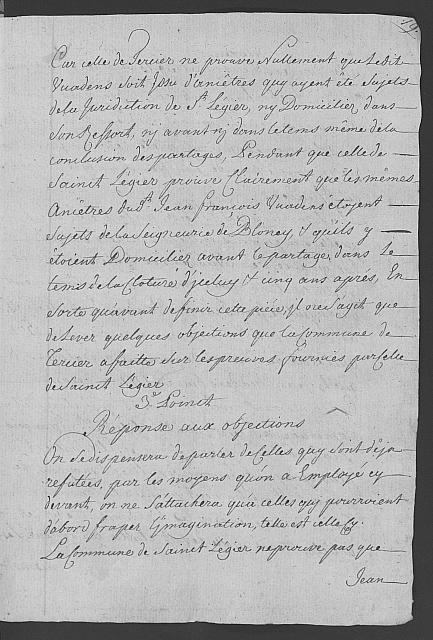 Car celle de Tercier ne prouve Nullement que Ledit
Vuadens soit Issu d'anêtres quy ayent été Sujets
de la Juridiction de St. Légier, ny Domicilier dans
son Ressort, ny avant ny dans le tems même de la
conclusion des partages, Pendant que celle de
Sainct Légier prouve Clairement que les mêmes
Anêtres du dt. Jean François Vuadens etoyent
Sujets de la Seigneurie de Bloney, & qu'ils y
étoient Domicilier avant le partage, dans le
tems de la Cloture d'jceluy & cinq ans aprés, En
Sorte qu'avant de finir cette piéce, jl ne s'agit que
de Lever quelques objections que la Commune de
Tercier a faitte sur les preuves fournies par Celle
de Sainct Légier
3e. Poinct
Réponse aux objections
On se dispensera de parler de Celles quy sont déja
refutées, par les moyens qu'on a Employé cy
devant, on ne S'attachera qu'a celles quy pourroient
d'abord fraper l'jmagination, telle est celle Cy.
La Commune de Sainct Légier ne prouve pas que
Jean